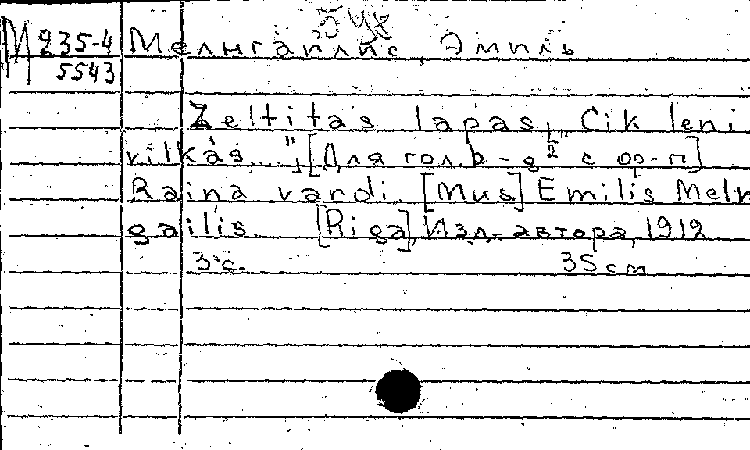 М 235-4
5543
Мелнгайлис, Эмиль
Zeltitas lapas, "Cik leni
vilkás...", [Для гол. с ф-п]
Raina vardi. [Mus] Emilis Meln
gailis. [Riga], Изд. автора, 1912
3 с. 35 cm